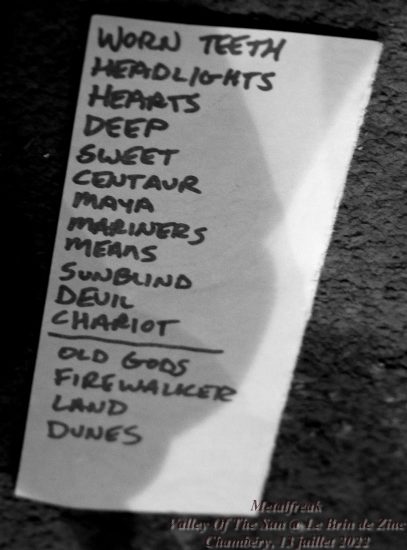 WORN TEETH
HEADLIGHTS
HEARTS
DEEP
SWEET
CENTAUR
MAYA
MARINERS
MEANS
SUNBLIND
DEVIL
CHARIOT
OLD GODS
FIREWALKER
LAND
DUNES
Metalfreak
Valley Of The Sun @ Le Brin de Zinc
Chambéry, 13 juillet 2022